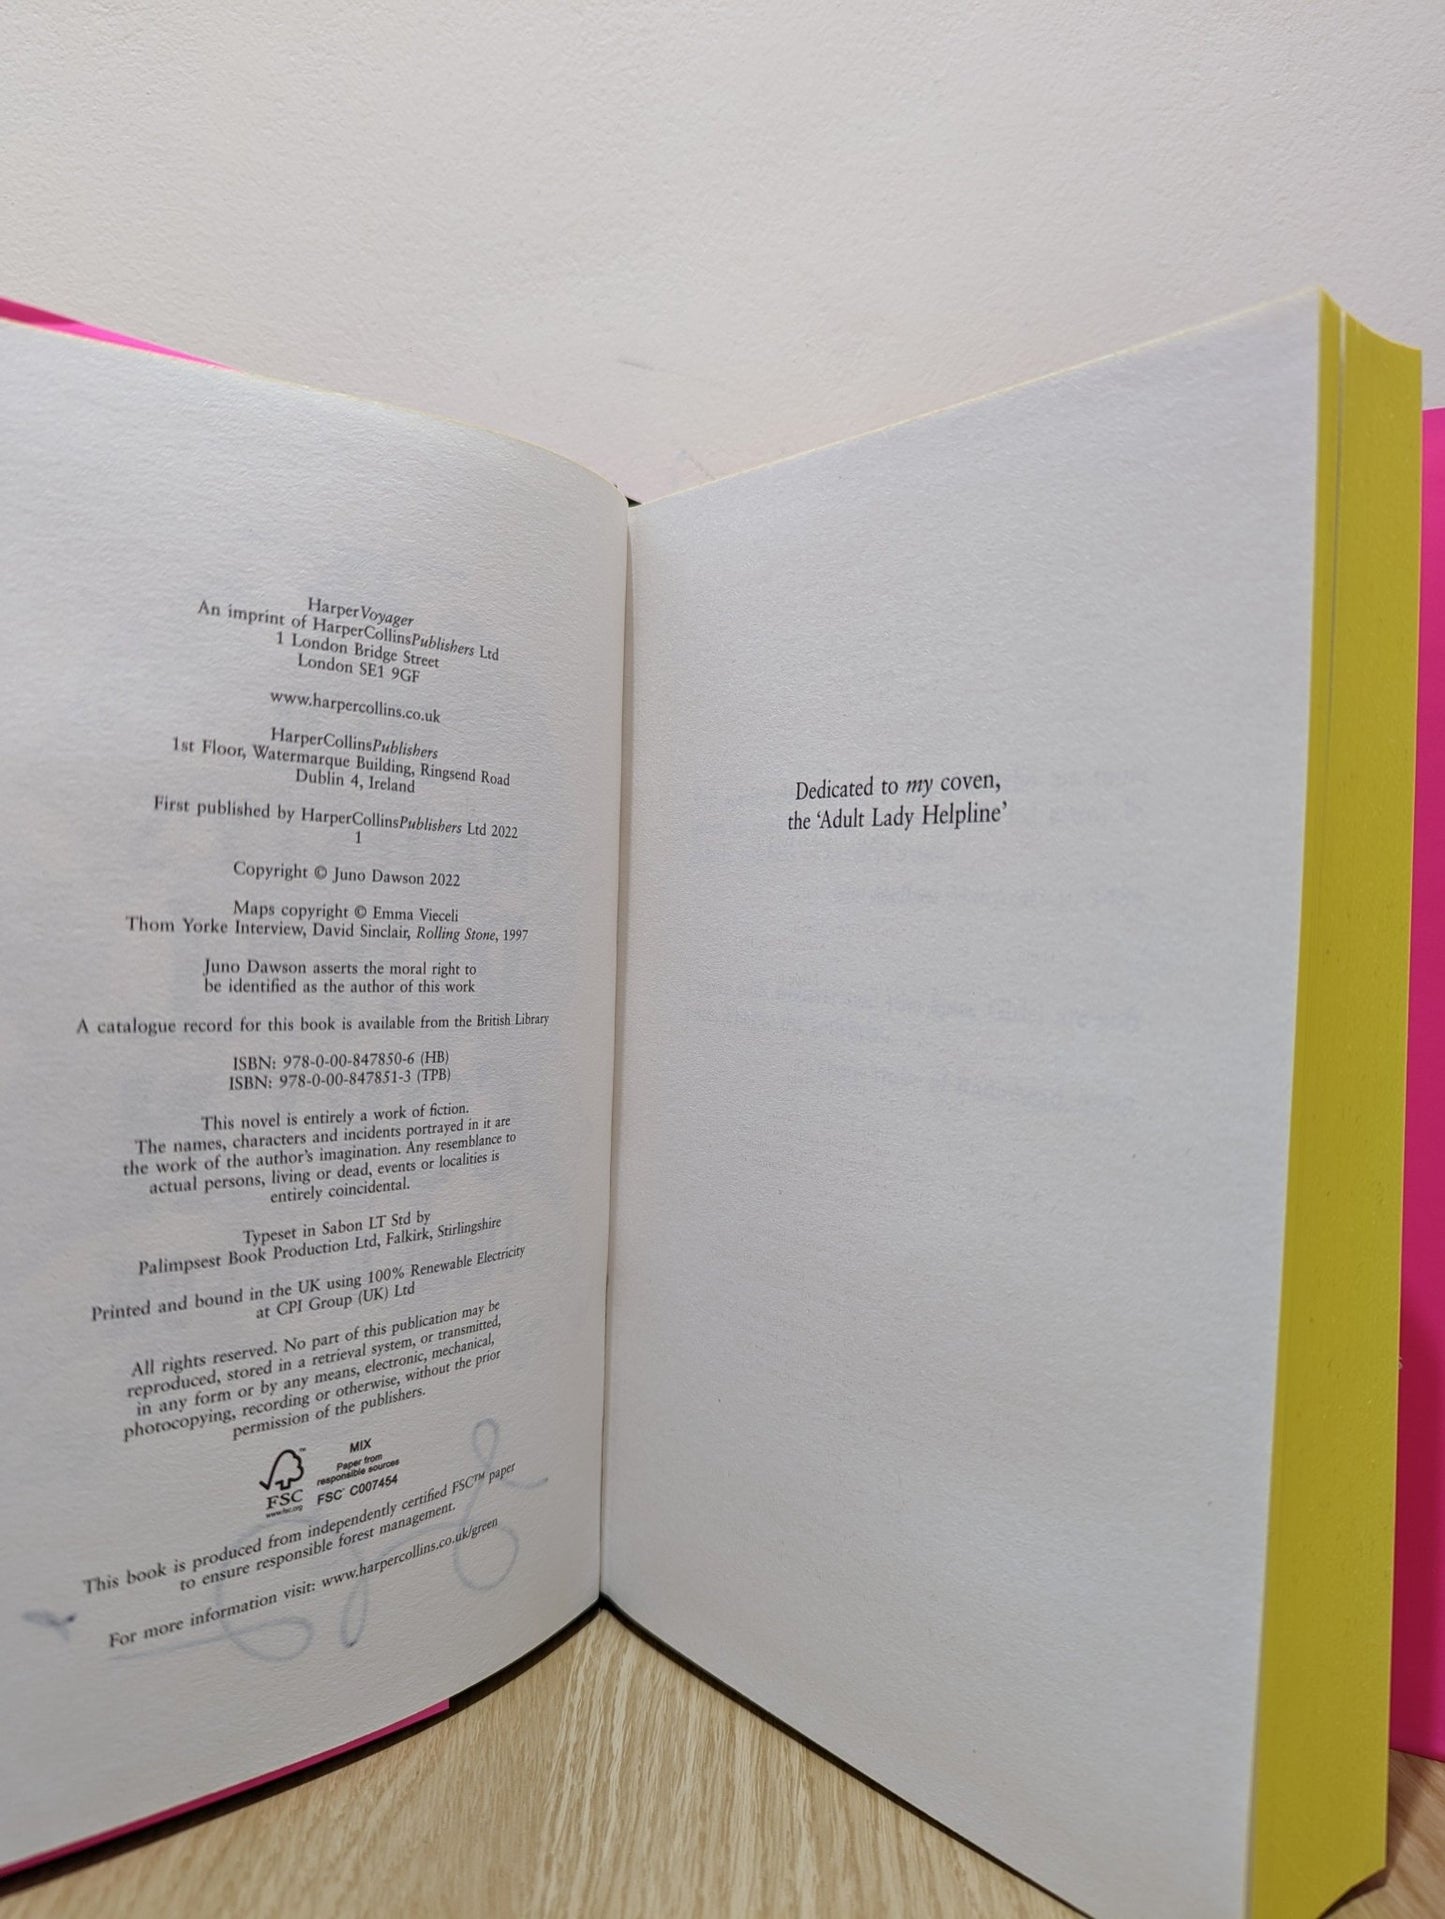 HarperVoyager
An imprint of HarperCollinsPublishers Ltd
1 London Bridge Street
London SE1 9GF
www.harpercollins.co.uk
HarperCollinsPublishers
1st Floor, Watermarque Building, Ringsend Road
Dublin 4, Ireland
First published by HarperCollinsPublishers Ltd 2022
1
Copyright © Juno Dawson 2022
Maps copyright © Emma Vieceli
Thom Yorke Interview, David Sinclair, Rolling Stone, 1997
Juno Dawson asserts the moral right to
be identified as the author of this work
A catalogue record for this book is available from the British Library
ISBN: 978-0-00-847850-6 (HB)
ISBN: 978-0-00-847851-3 (TPB)
This novel is entirely a work of fiction.
The names, characters and incidents portrayed in it are
the work of the author's imagination. Any resemblance to
actual persons, living or dead, events or localities is
entirely coincidental.
Typeset in Sabon LT Std by
Palimpsest Book Production Ltd, Falkirk, Stirlingshire
Printed and bound in the UK using 100% Renewable Electricity
at CPI Group (UK) Ltd
All rights reserved. No part of this publication may be
reproduced, stored in a retrieval system, or transmitted,
in any form or by any means, electronic, mechanical,
photocopying, recording or otherwise, without the prior
permission of the publishers.
FSC™
www.fsc.org
MIX
Paper from
responsible sources
FSC® C007454
This book is produced from independently certified FSC™ paper
to ensure responsible forest management.
For more information visit: www.harpercollins.co.uk/green
Dedicated to my coven,
the ‘Adult Lady Helpline’